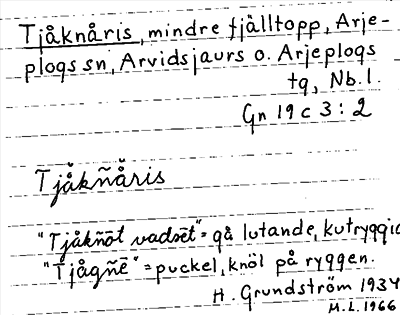 Tjåknåris, mindre fjälltopp, Arje-
plogs sn, Arvidsjaurs o. Arjeplogs
tg, Nb.l.
Gn 19 c 3:2
Tjåkñåris
"Tjåkñōt vadsēt" = gå lutande, kutryggig
"Tjågñē" = puckel, knöl på ryggen.
H. Grundström 1934
M.L. 1966